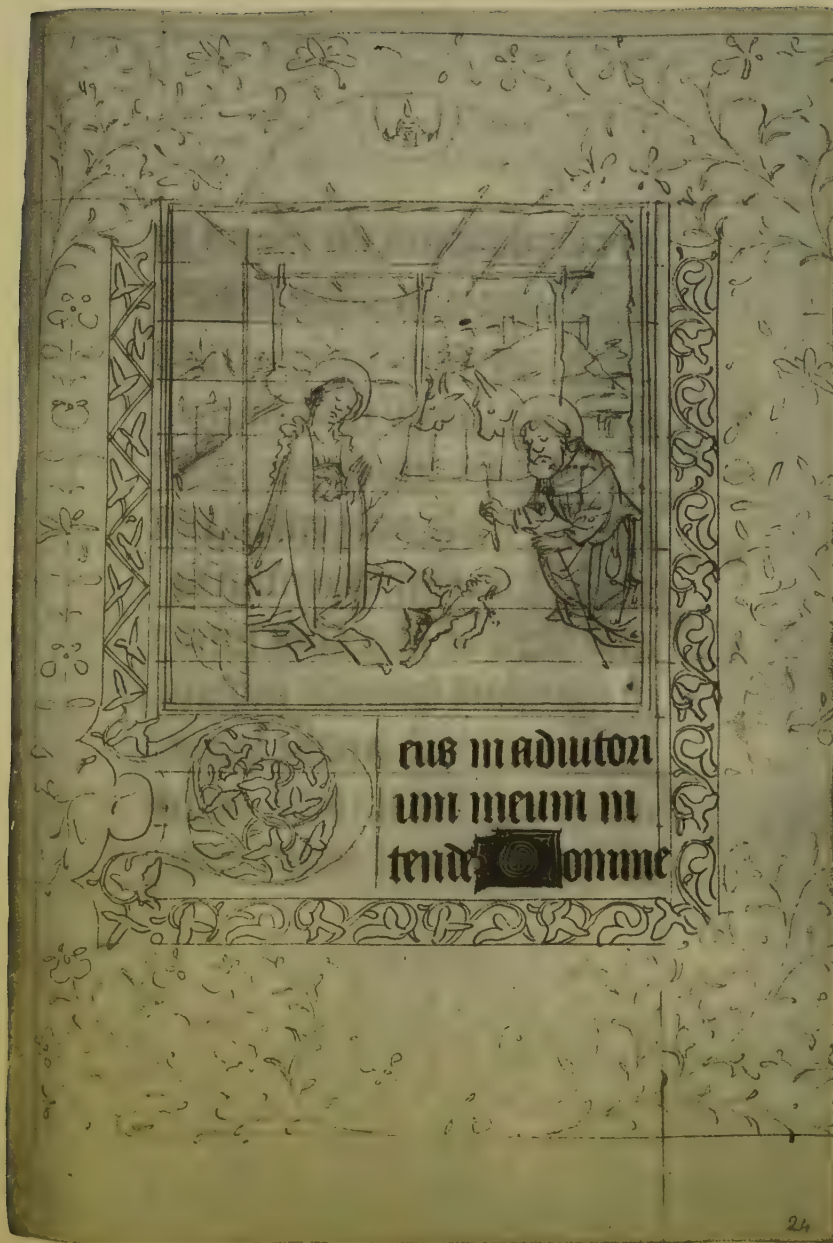 eus in adiutori
um meum in
tende Domine
24